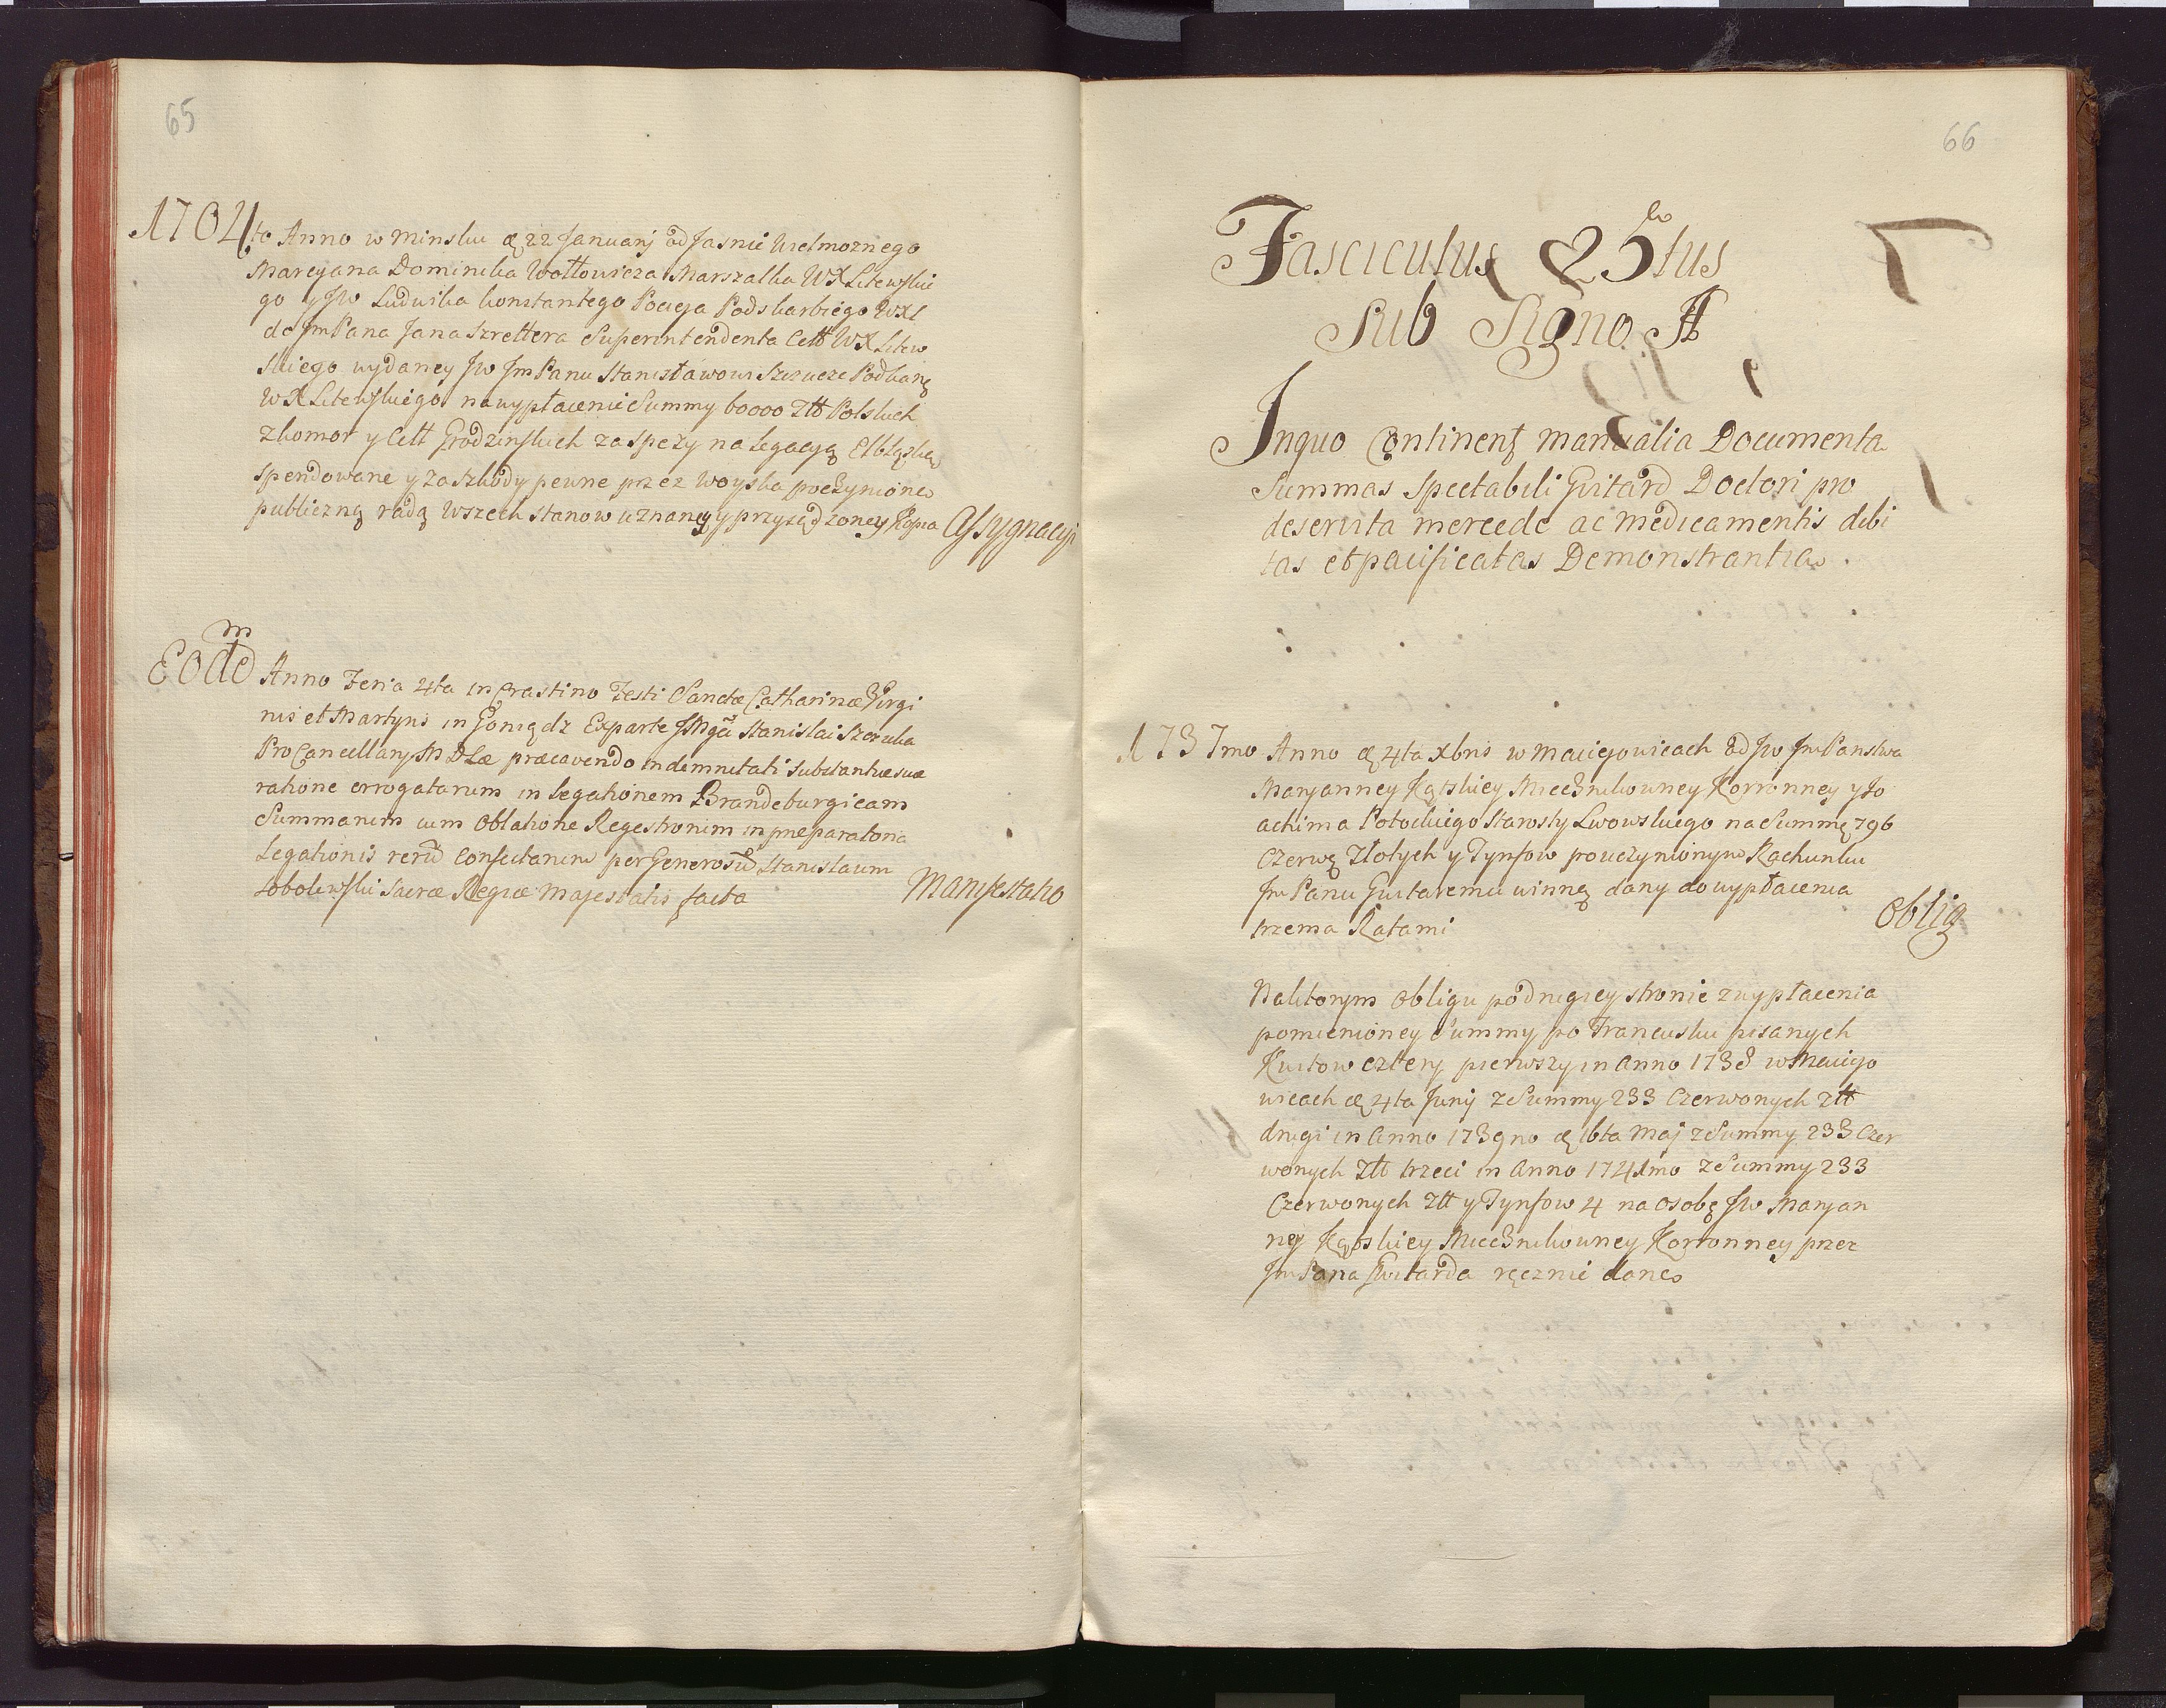 65
1704to Anno w Minsku d 22 Januarij od Jasnie Wielmoznego
Marcyana Dominika Wołłowicza Marszałka WX Litewskie
go y Jw Ludwika Konstantego Pocieja Podskarbiego WXL
do Jm Pana Jana Szrettera Superintendenta Cełł WX Litew
skiego wydaney Jw Jm Panu Stanisławowi Szczuce Podkan
WX Litewskiego na wypłacenie Summy 60000 Złł Polskich
z komor y Cełł Grodzinskich za spezy na Legacyą Elbląską
spendowane y za szkody pewne przez Woyska poczynione
publiczną radą Wszech stanow uznaney y przysądzoney Kopia Assygnacyi
Eodem Anno Feria 4ta in Crastino Festi Sanctæ Catharinæ Virgi
nis et Martyris in Goniądz Exparte Stanislai Szczuka
ProCancellarij M D Læ præcavendo indemnitati substantiæ suæ
ratione errogatarum in legationem Brandeburgicam
Summarum cum Oblatione Regestrorum in præparatoria
Legationis rerū Confectarum per Generosū Stanislaum
Sobolewski Sacræ Regiæ Majestatis facta Manifestatio
66
Fasciculus 25tus
Sub Signo
Inquo Continent manualia Documenta
Summas Spectabili Guitard Doctori pro
deservita mercede ac medicamentis debi
tas et pacificatas Demonstrantia.
1737mo Anno d 4ta Xbris w Maciejowicach od Jw Jm Panstwa
Maryanney Kątskiey Miecznikowney Korronney y Jo
achima Potockiego Starosty Lwowskiego na Summę 796
Czerw Złotych y Tynfow po uczynionym Rachunku
Jm Panu Guitaremu winną dany do wypłacenia
trzema Ratami Oblig
Naktorym Obligu podrugiey stronie z wypłacenia
pomienioney Summy po Francusku pisanych
Kwitow cztery pierwszy in Anno 1738 w Maciejo
wicach d 4ta Junij z Summy 233 Czerwonych Złł
drugi in Anno 1739no d 16ta Maj z Summy 233 Czer
wonych Złł trzeci in Anno 1741mo z Summy 233
Czerwonych Złł y Tynfow 4 na Osobę Jw Maryan
ney Kątskiey Miecznikowney Korronney przez
Jm Pana Guitarda ręcznie dane